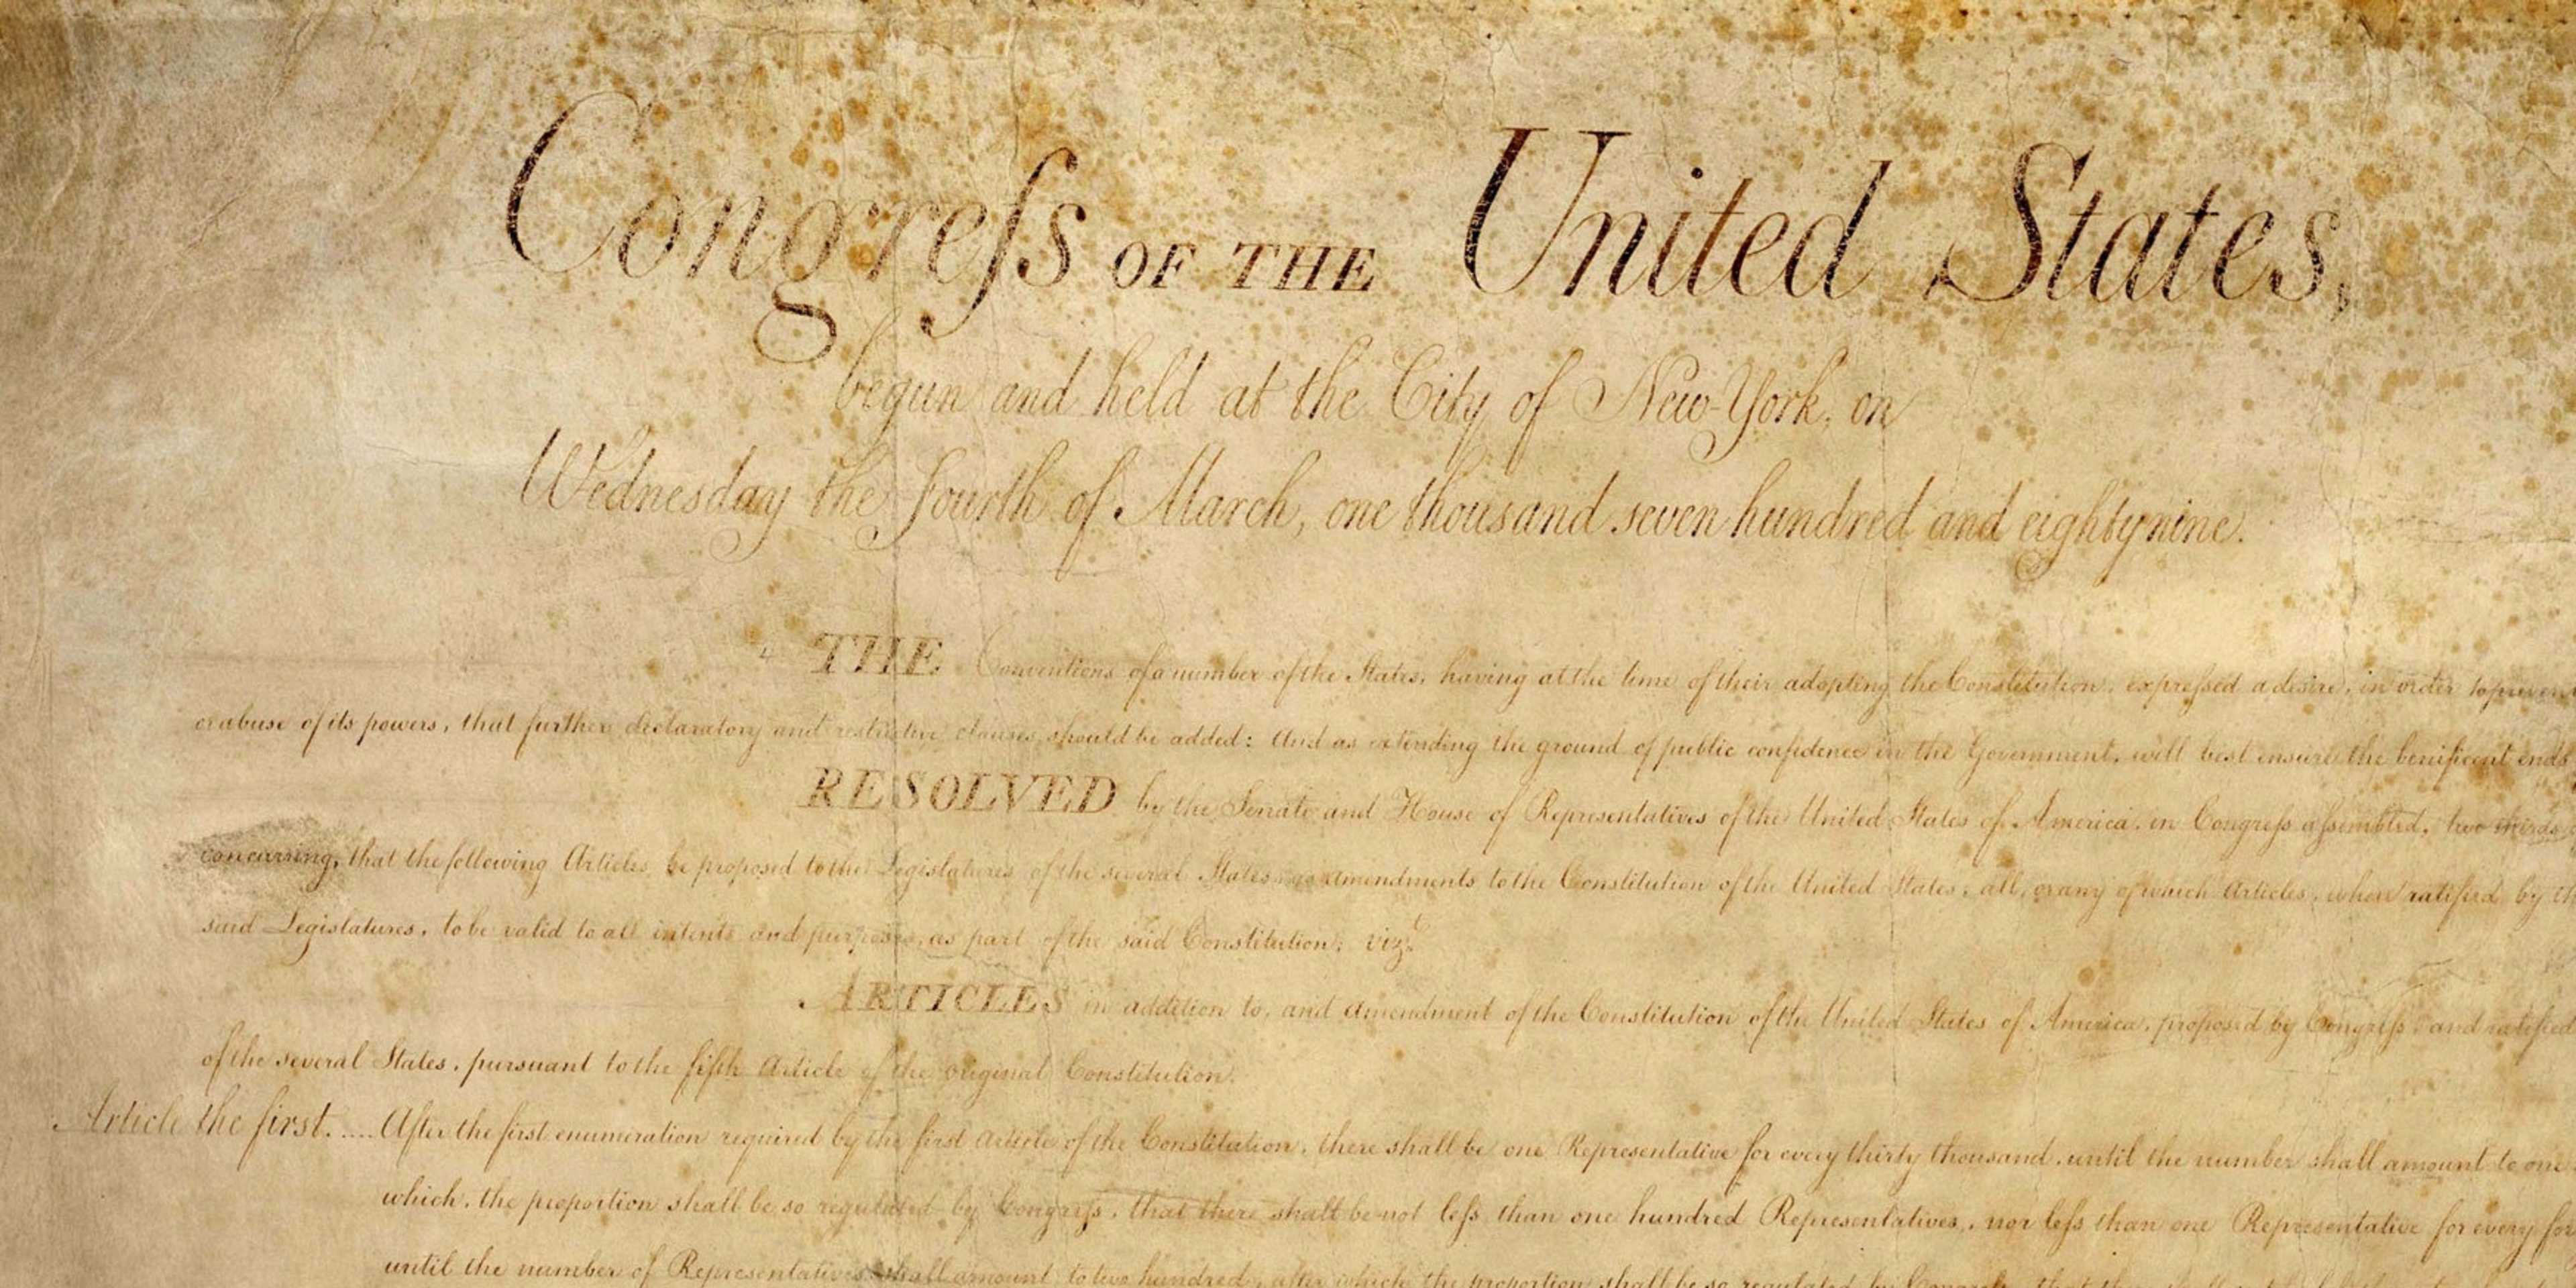 Congreſs OF THE United States,
begun and held at the City of New-York, on
Wednesday the fourth of March, one thousand seven hundred and eighty nine.
THE Conventions of a number of the States, having at the time of their adopting the Constitution, expreſsed a desire, in order to prevent
or abuse of its powers, that further declaratory and restrictive clauses should be added: And as extending the ground of public confidence in the Government, will best ensure the benificent ends
RESOLVED by the Senate and House of Representatives of the United States of America, in Congreſs aſsembled, two thirds
concurring, that the following Articles be proposed to the Legislatures of the several States, as amendments to the Constitution of the United States, all, or any of which Articles, when ratified by
said Legislatures, to be valid to all intents and purposes, as part of the said Constitution; vizt.
ARTICLES in addition to, and amendment of the Constitution of the United States of America, proposed by Congreſs, and ratified
of the several States, pursuant to the fifth Article of the original Constitution.
Article the first..... After the first enumeration required by the first Article of the Constitution, there shall be one Representative for every thirty thousand, until the number shall amount to one
which, the proportion shall be so regulated by Congreſs, that there shall be not leſs than one hundred Representatives, nor leſs than one Representative for every
until the number of Representatives shall amount to two hundred, after which the proportion shall be so regulated by Congreſs, that